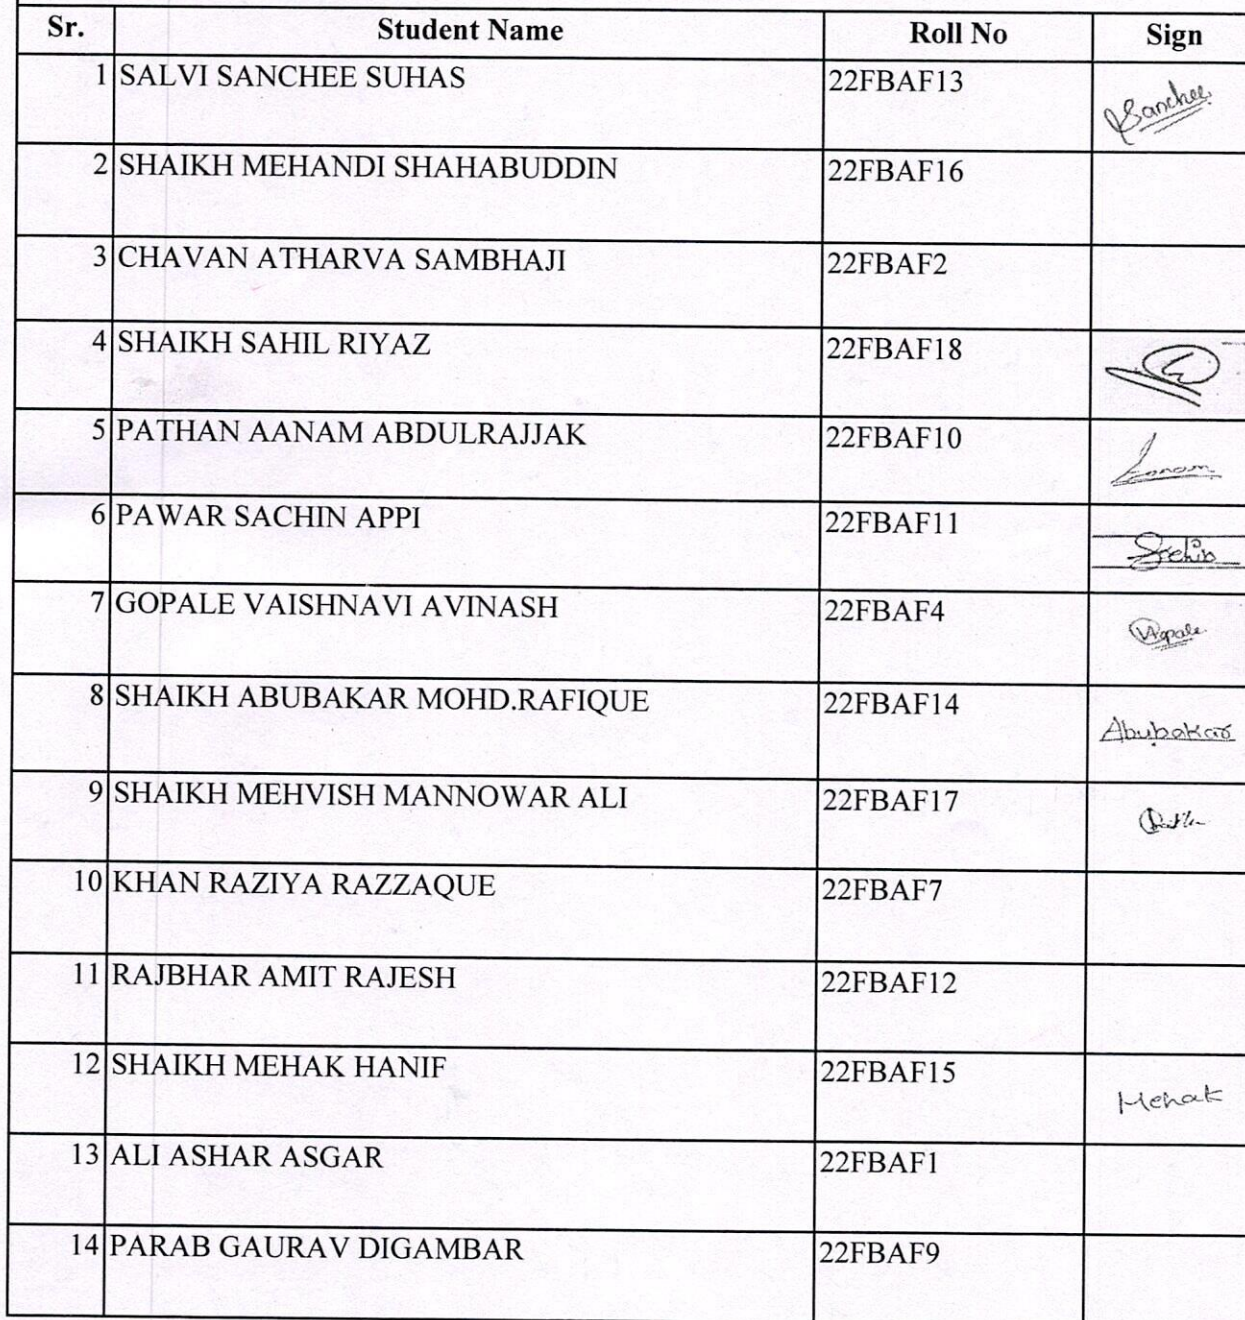 Sr. Student Name Roll No Sign
1 SALVI SANCHEE SUHAS 22FBAF13 Sanchee
2 SHAIKH MEHANDI SHAHABUDDIN 22FBAF16
3 CHAVAN ATHARVA SAMBHAJI 22FBAF2
4 SHAIKH SAHIL RIYAZ 22FBAF18
5 PATHAN AANAM ABDULRAJJAK 22FBAF10
6 PAWAR SACHIN APPI 22FBAF11
7 GOPALE VAISHNAVI AVINASH 22FBAF4
8 SHAIKH ABUBAKAR MOHD.RAFIQUE 22FBAF14 Abubakar
9 SHAIKH MEHVISH MANNOWAR ALI 22FBAF17
10 KHAN RAZIYA RAZZAQUE 22FBAF7
11 RAJBHAR AMIT RAJESH 22FBAF12
12 SHAIKH MEHAK HANIF 22FBAF15 Mehak
13 ALI ASHAR ASGAR 22FBAF1
14 PARAB GAURAV DIGAMBAR 22FBAF9